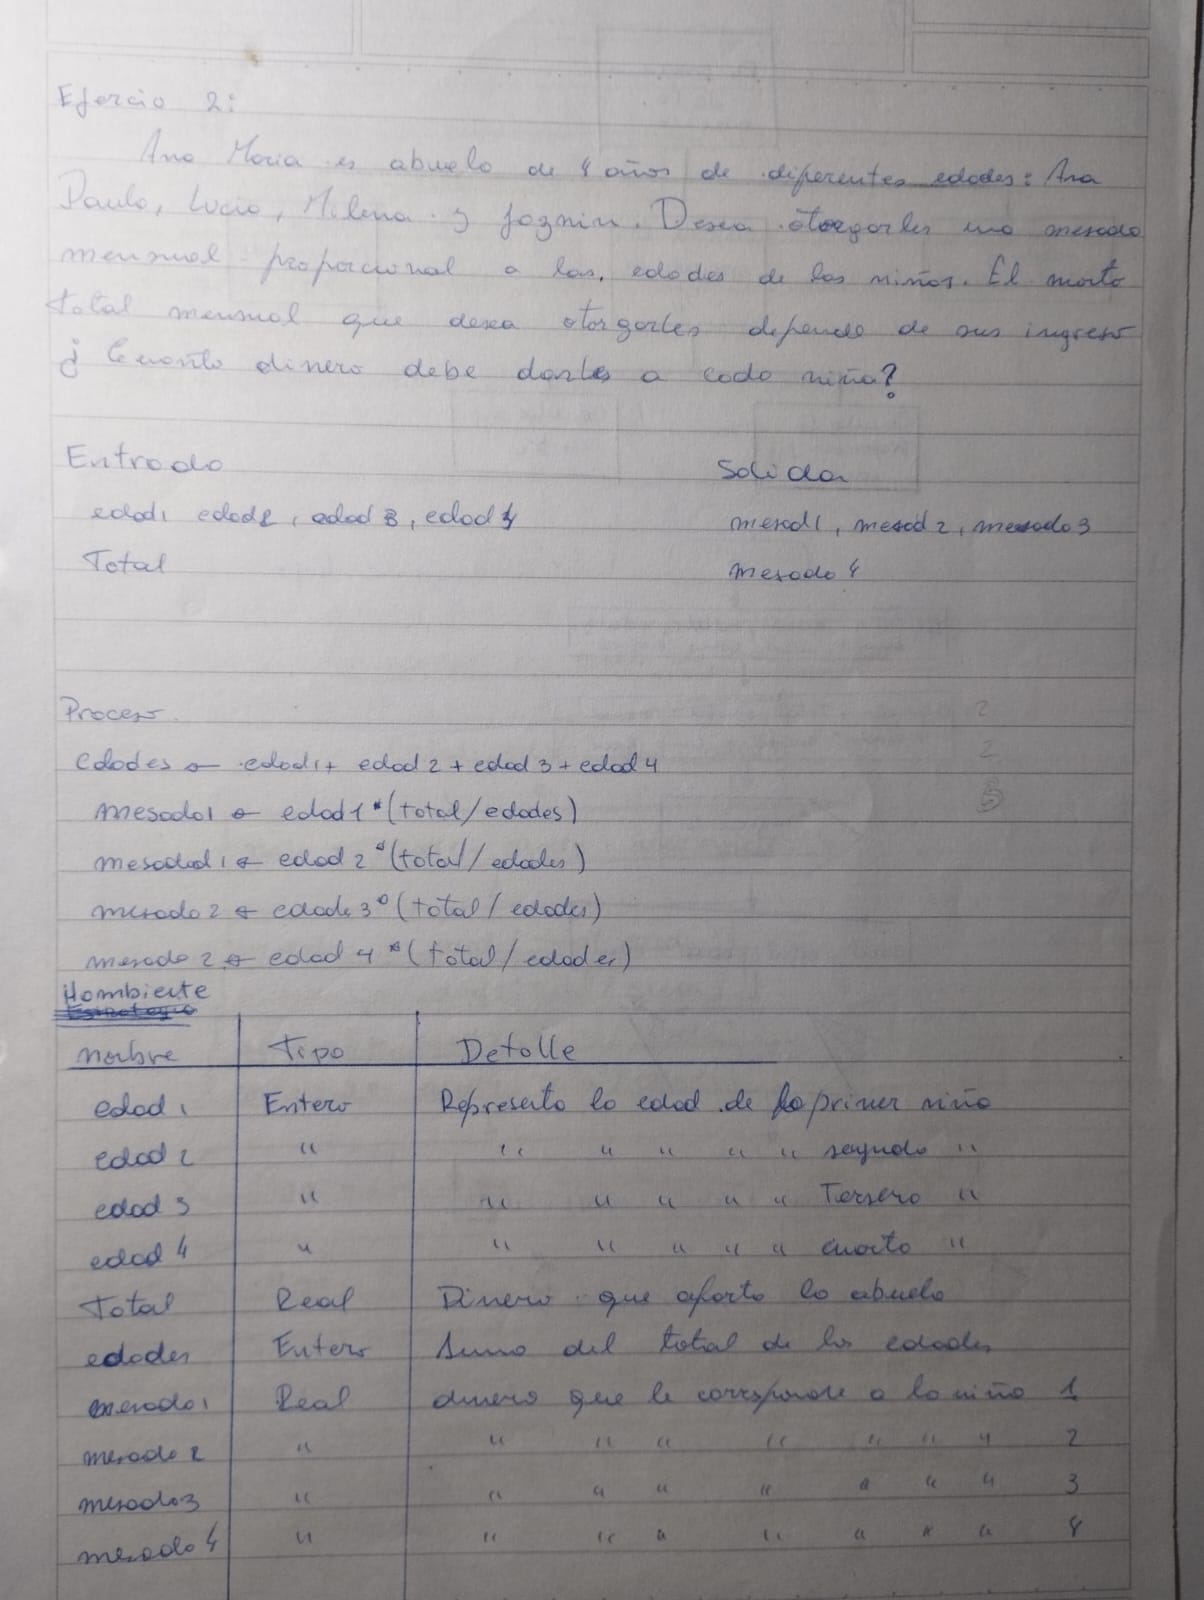 Ejercio 2:
Ana Maria es abuela de 4 años de diferentes edades: Ana
Paula, Lucia, Milena y Jazmin. Desea otorgarles una mesada
mensual proporcional a las edades de los niños. El monto
total mensual que desea otorgarles depende de sus ingreso
¿ Cuanto dinero debe darles a cada niña?
Entrada Salida
edad1 edad2, edad 3, edad 4 mesad1, mesad 2, mesada 3
Total mesada 4
Proceso 2
edades ← edad1+ edad 2 + edad 3 + edad 4 2
mesada1 ← edad1 * (total/edades) 5
mesadad1 ← edad 2 * (total/edades)
mesada 2 ← edade 3 * (total/edades)
mesada 2 ← edad 4 * (total/edades)
Hambiente
nombre Tipo Detalle
edad 1 Entero Representa la edad de la primer niña
edad 2 " " " " " " segunda "
edad 3 " " " " " " Tersera "
edad 4 " " " " " " cuarta "
Total Real Dinero que aporta la abuela
edades Entero Suma del total de las edades
mesada1 Real dinero que le corresponde a la niña 1
mesada 2 " " " " " " " " 2
mesada3 " " " " " " " " 3
mesada 4 " " " " " " " " 4